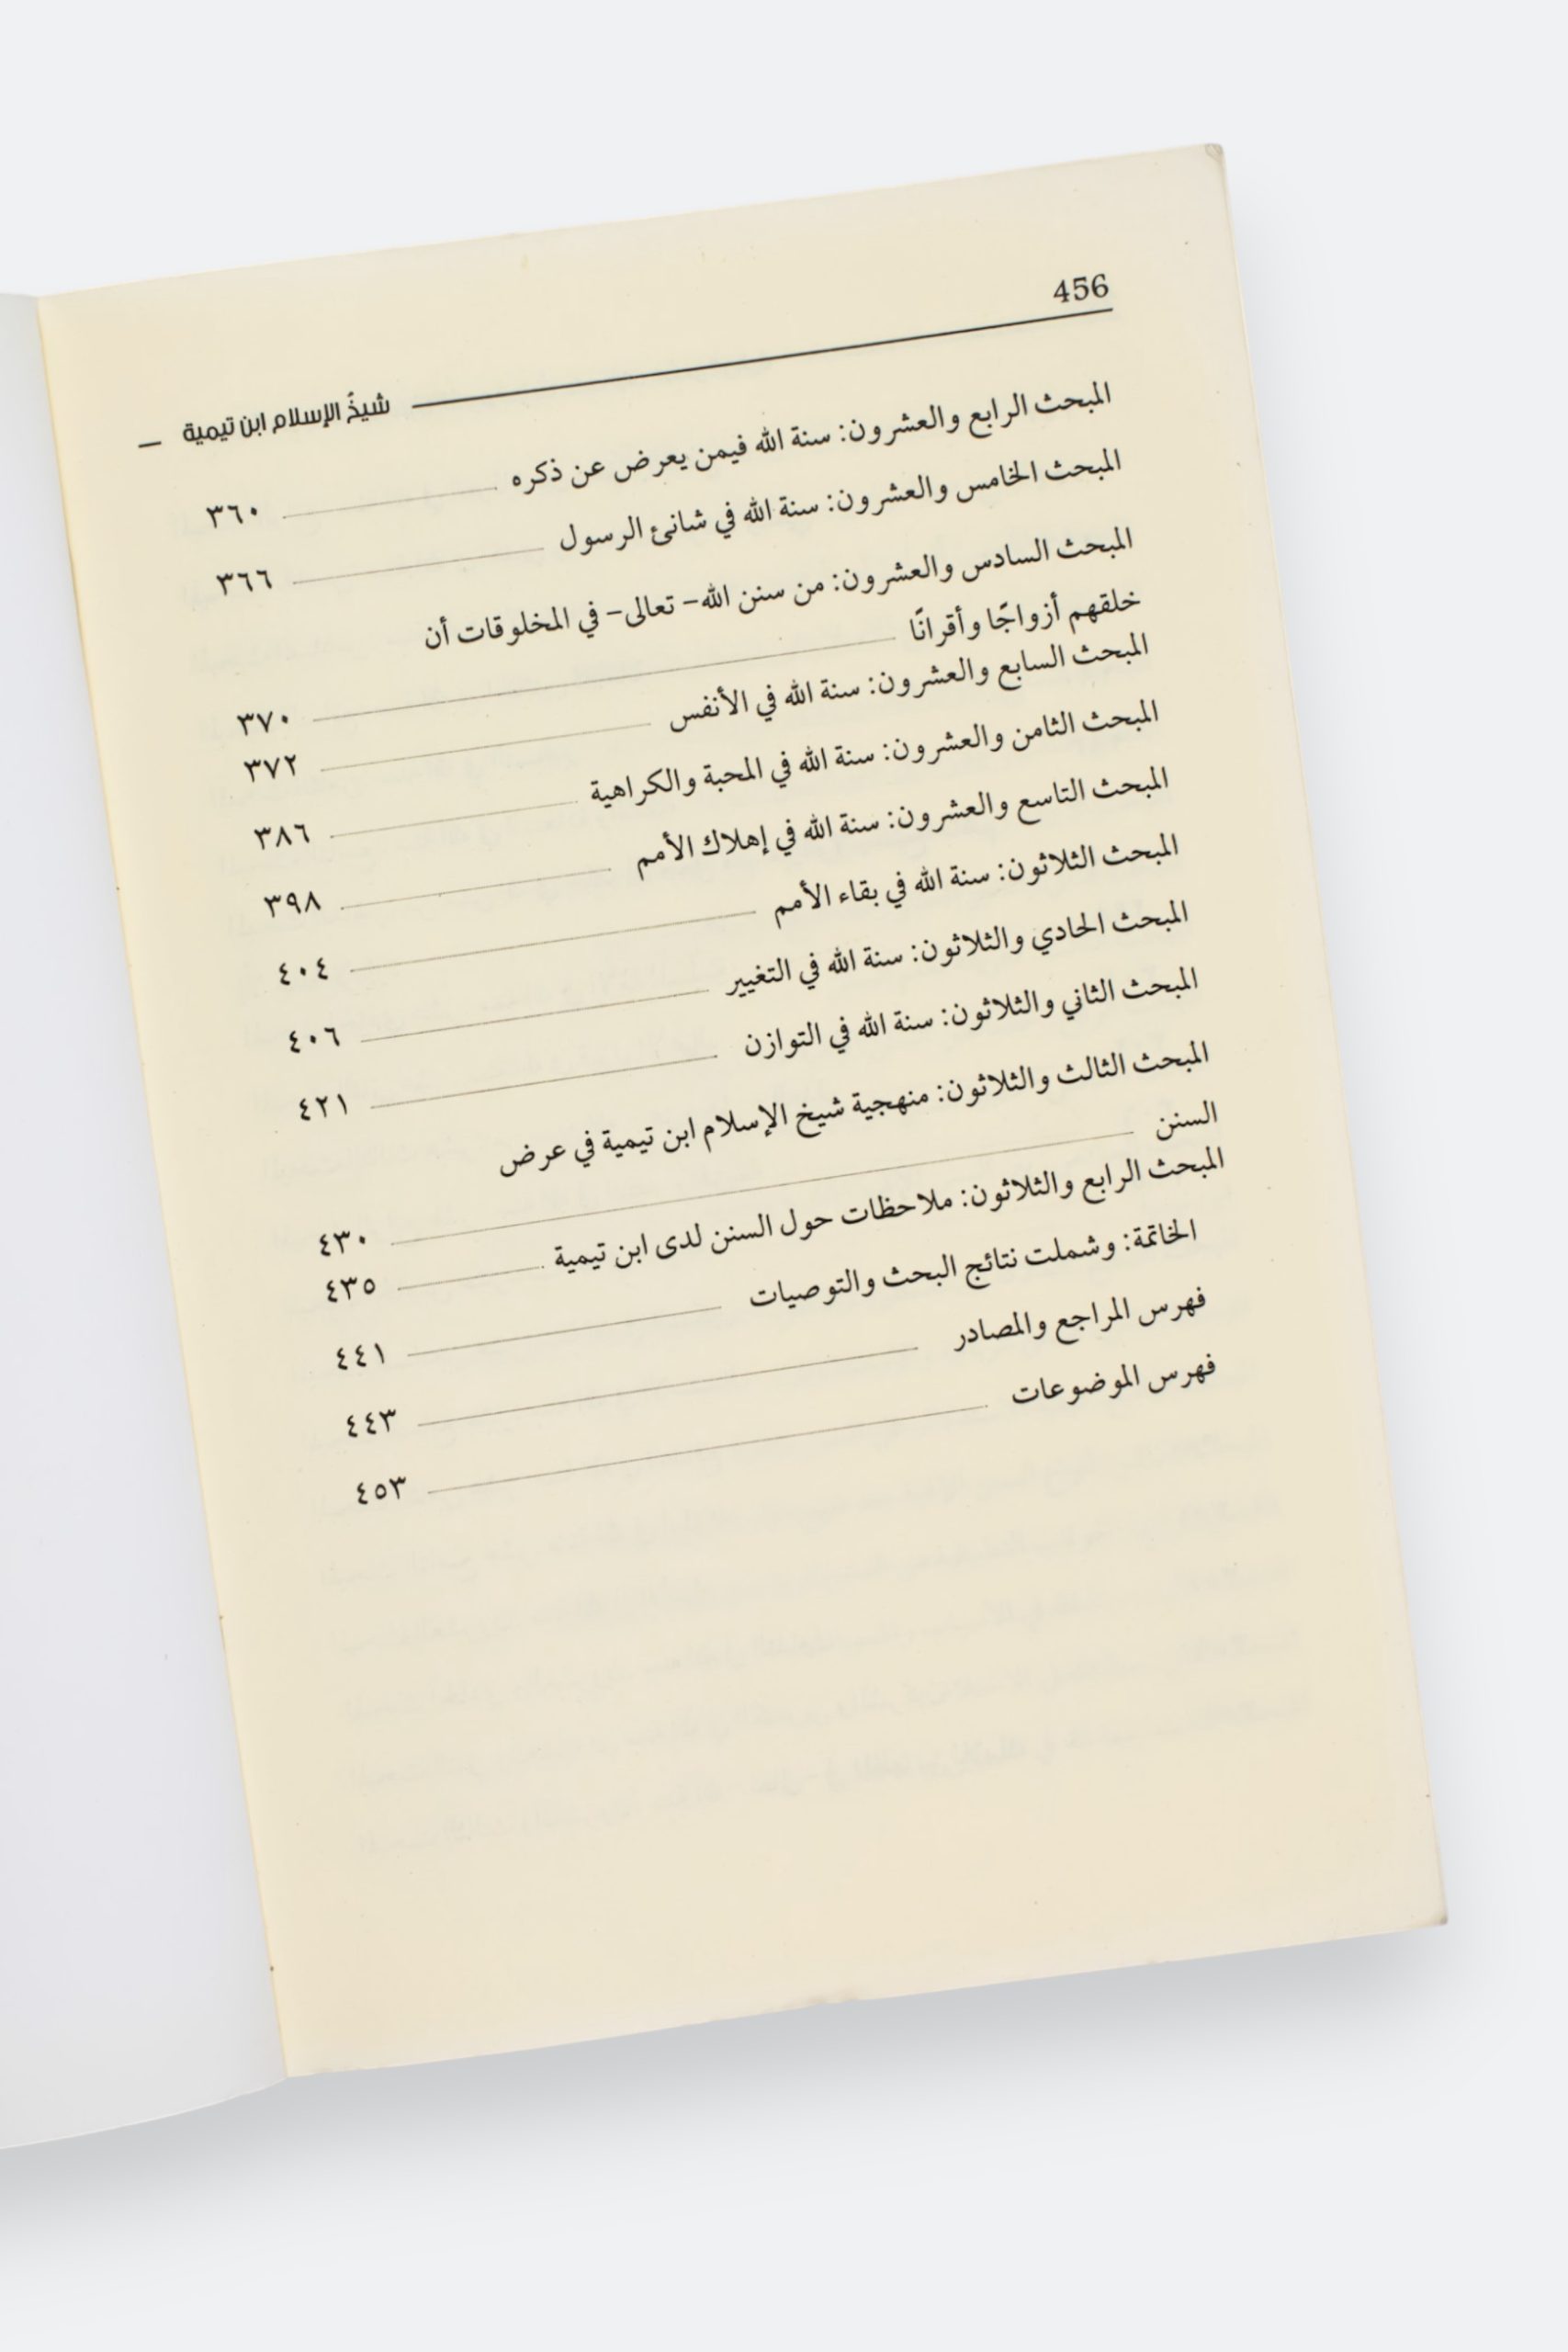 456
شيخُ الإسلام ابن تيمية
المبحث الرابع والعشرون: سنة الله فيمن يعرض عن ذكره ٣٦٠
المبحث الخامس والعشرون: سنة الله في شانئ الرسول ٣٦٦
المبحث السادس والعشرون: من سنن الله- تعالى- في المخلوقات أن
خلقهم أزواجًا وأقرانًا ٣٧٠
المبحث السابع والعشرون: سنة الله في الأنفس ٣٧٢
المبحث الثامن والعشرون: سنة الله في المحبة والكراهية ٣٨٦
المبحث التاسع والعشرون: سنة الله في إهلاك الأمم ٣٩٨
المبحث الثلاثون: سنة الله في بقاء الأمم ٤٠٤
المبحث الحادي والثلاثون: سنة الله في التغيير ٤٠٦
المبحث الثاني والثلاثون: سنة الله في التوازن ٤٢١
المبحث الثالث والثلاثون: منهجية شيخ الإسلام ابن تيمية في عرض
السنن ٤٣٠
المبحث الرابع والثلاثون: ملاحظات حول السنن لدى ابن تيمية ٤٣٥
الخاتمة: وشملت نتائج البحث والتوصيات ٤٤١
فهرس المراجع والمصادر ٤٤٣
فهرس الموضوعات ٤٥٣